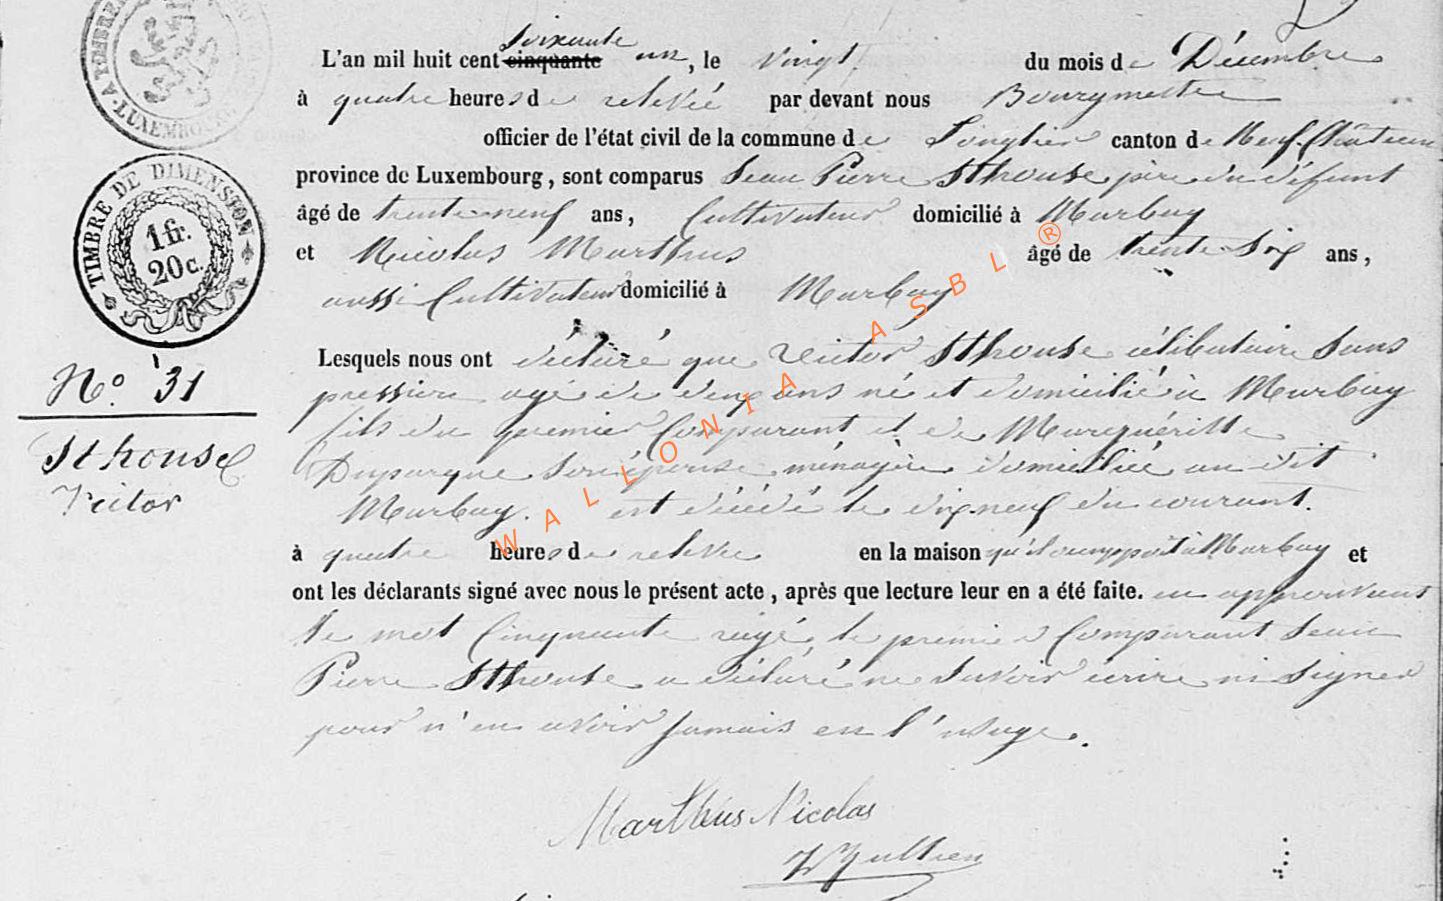 TIMBRE DE DIMENSION
1 fr.
20 c.
N.° 31
Sthouse
Victor
soixante
L'an mil huit cent cinquante un, le vingt du mois de Décembre
à quatre heures de relevée par devant nous Bourgmestre
officier de l'état civil de la commune de Longlier canton de Neufchâteau
province de Luxembourg, sont comparus Jean Pierre Sthouse père du défunt
âgé de trente-neuf ans, Cultivateur domicilié à Marbay
et Nicolas Marthus âgé de trente six ans,
aussi Cultivateur domicilié à Marbay
Lesquels nous ont déclaré que Victor Sthouse célibataire sans
pression agé de ans né et domicilié à Marbay
fils du premier Comparant et de Marguéritte
Duparque son épouse ménagère domiciliée au dit
Marbay. est décédé le dixneuf du courant.
à quatre heures de relevée en la maison qu'il occupait à Marbay et
ont les déclarants signé avec nous le présent acte, après que lecture leur en a été faite. en approuvant
le mot Cinquante rayé, le premier Comparant Jean
Pierre Sthouse a déclaré ne savoir écrire ni signer
pour n'en avoir jamais eu l'usage.
Marthus Nicolas
WALLONIA ASBL ®